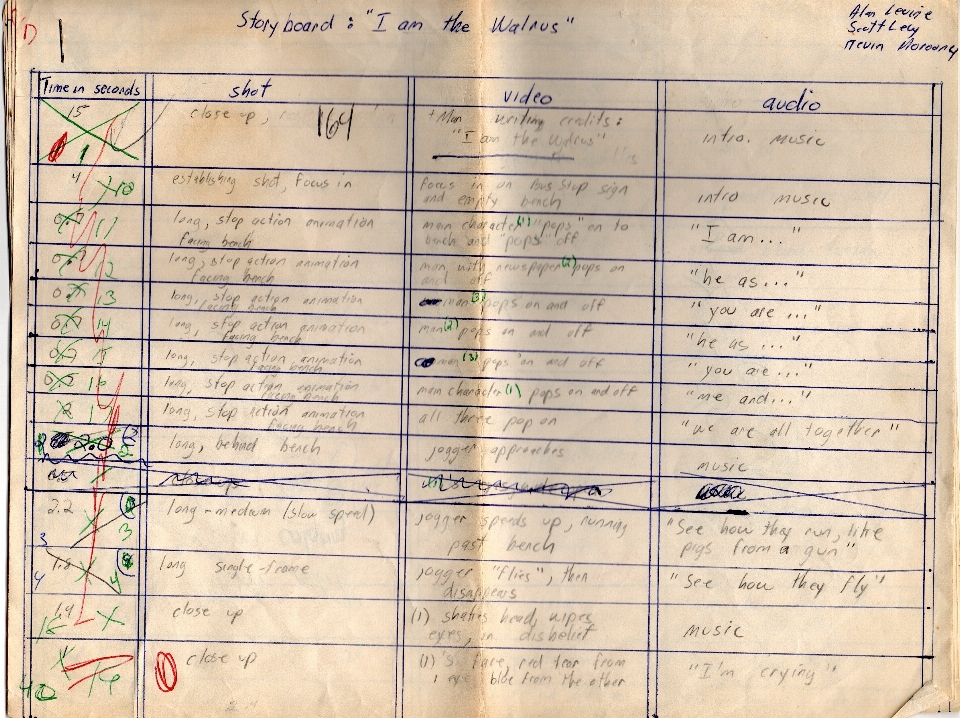 Storyboard: "I am the Walrus"
Alan Levine
Scott Levy
Kevin
1
Time in seconds shot video audio
15 close up, 164 Man writing credits: "I am the Walrus" intro. music
4 10 establishing shot, focus in focus in on Bus Stop sign and empty bench intro music
0.7 11 long, stop action animation facing bench main character (1) "pops" on to bench and "pops" off "I am..."
12 long, stop action animation facing bench man with newspaper (2) pops on and off "he as..."
13 long, stop action animation facing bench man (3) pops on and off "you are..."
14 long, stop action animation facing bench man (2) pops on and off "he as ..."
long, stop action animation facing bench man (3) pops on and off "you are..."
16 long, stop action animation facing bench main character (1) pops on and off "me and..."
2 long, stop action animation facing bench all three pop on "we are all together"
2.0 long, behind bench jogger approaches music
2.2 3 long-medium (slow speed) jogger speeds up, running past bench "See how they run, like pigs from a gun"
3
1.8 4 long single-frame jogger "flies", then disappears "See how they fly"
4
1.4 close up (1) shakes head, wipes eyes, in disbelief music
close up (1)'s face, red tear from 1 eye blue from the other "I'm crying"